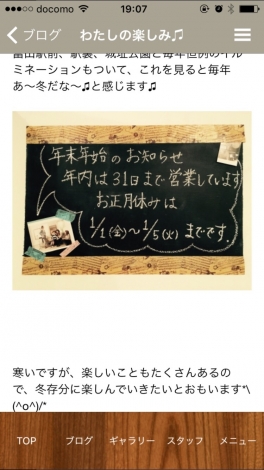 docomo 19:07
ブログ わたしの楽しみ♫
富山駅前、駅裏、城址公園と毎年恒例のイル
ミネーションもついて、これを見ると毎年
あ〜冬だな〜♫と感じます♫
年末年始のお知らせ
年内は31日まで営業しています
お正月休みは
1/1(金)〜1/5(火)までです.
寒いですが、楽しいこともたくさんあるの
で、冬存分に楽しんでいきたいとおもいます*\
(^o^)/*
TOP ブログ ギャラリー スタッフ メニュー